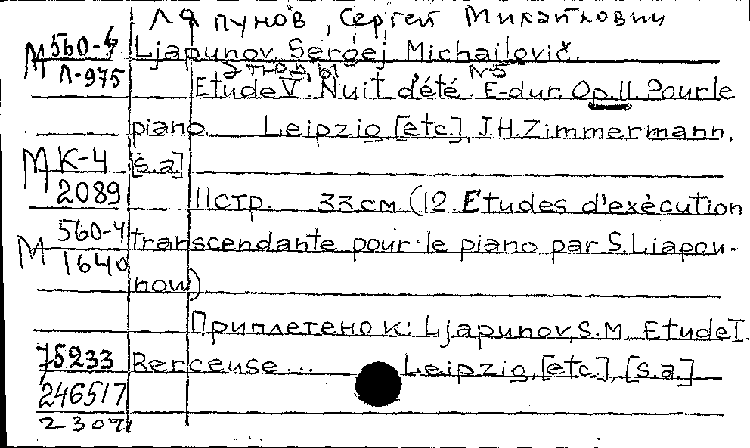 Ляпунов, Сергей Михайлович
М 560-4 Ljapunov, Sergej Michailovič.
Л-975
Этюды №5
Etude V. Nuit d'été. E-dur. Op. 11. Pour le
piano. Leipzig [etc.], J.H. Zimmermann,
М К-4 [s.a]
2089 11 стр. 33 см (12 Etudes d'exécution
М 560-4 transcendante pour le piano par S. Liapou-
1640
now)
Приплетено к: Ljapunov, S.M. Etude I.
75233 Berceuse... Leipzig, [etc.], [s.a.]
246517